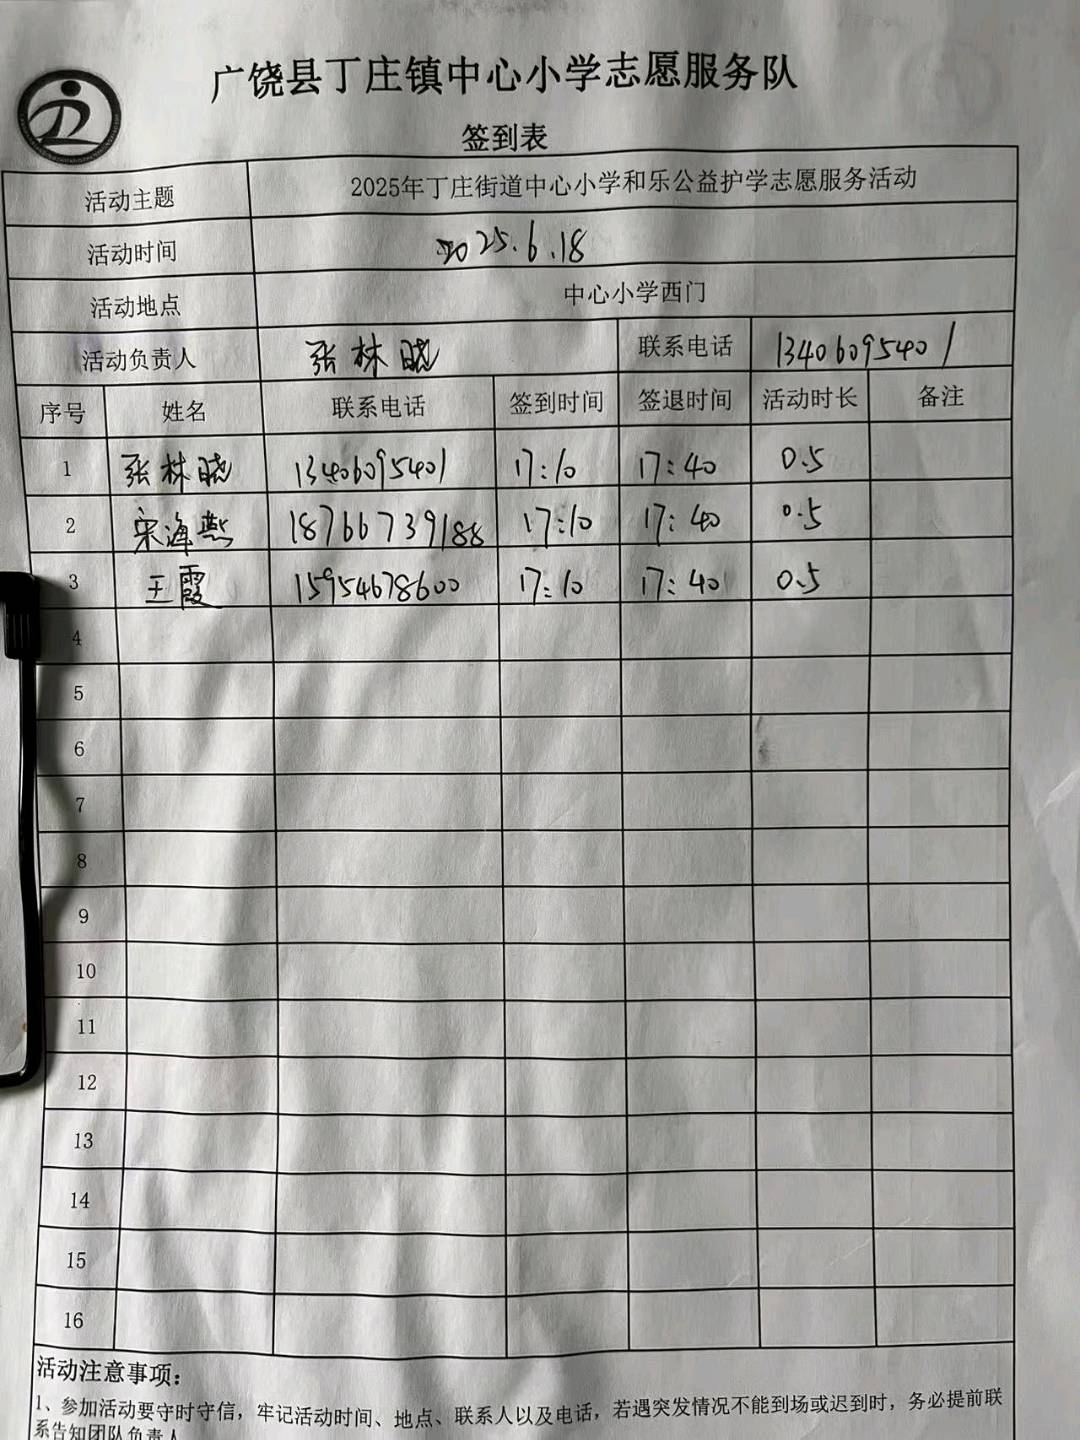 广饶县丁庄镇中心小学志愿服务队
签到表
活动主题 2025年丁庄街道中心小学和乐公益护学志愿服务活动
活动时间 2025.6.18
活动地点 中心小学西门
活动负责人 张林晓 联系电话 13406095401
序号 姓名 联系电话 签到时间 签退时间 活动时长 备注
1 张林晓 13406095401 17:10 17:40 0.5
2 宋海燕 18766739188 17:10 17:40 0.5
3 王霞 15954678600 17:10 17:40 0.5
4
5
6
7
8
9
10
11
12
13
14
15
16
活动注意事项：
1、参加活动要守时守信，牢记活动时间、地点、联系人以及电话，若遇突发情况不能到场或迟到时，务必提前联
系告知团队负责人